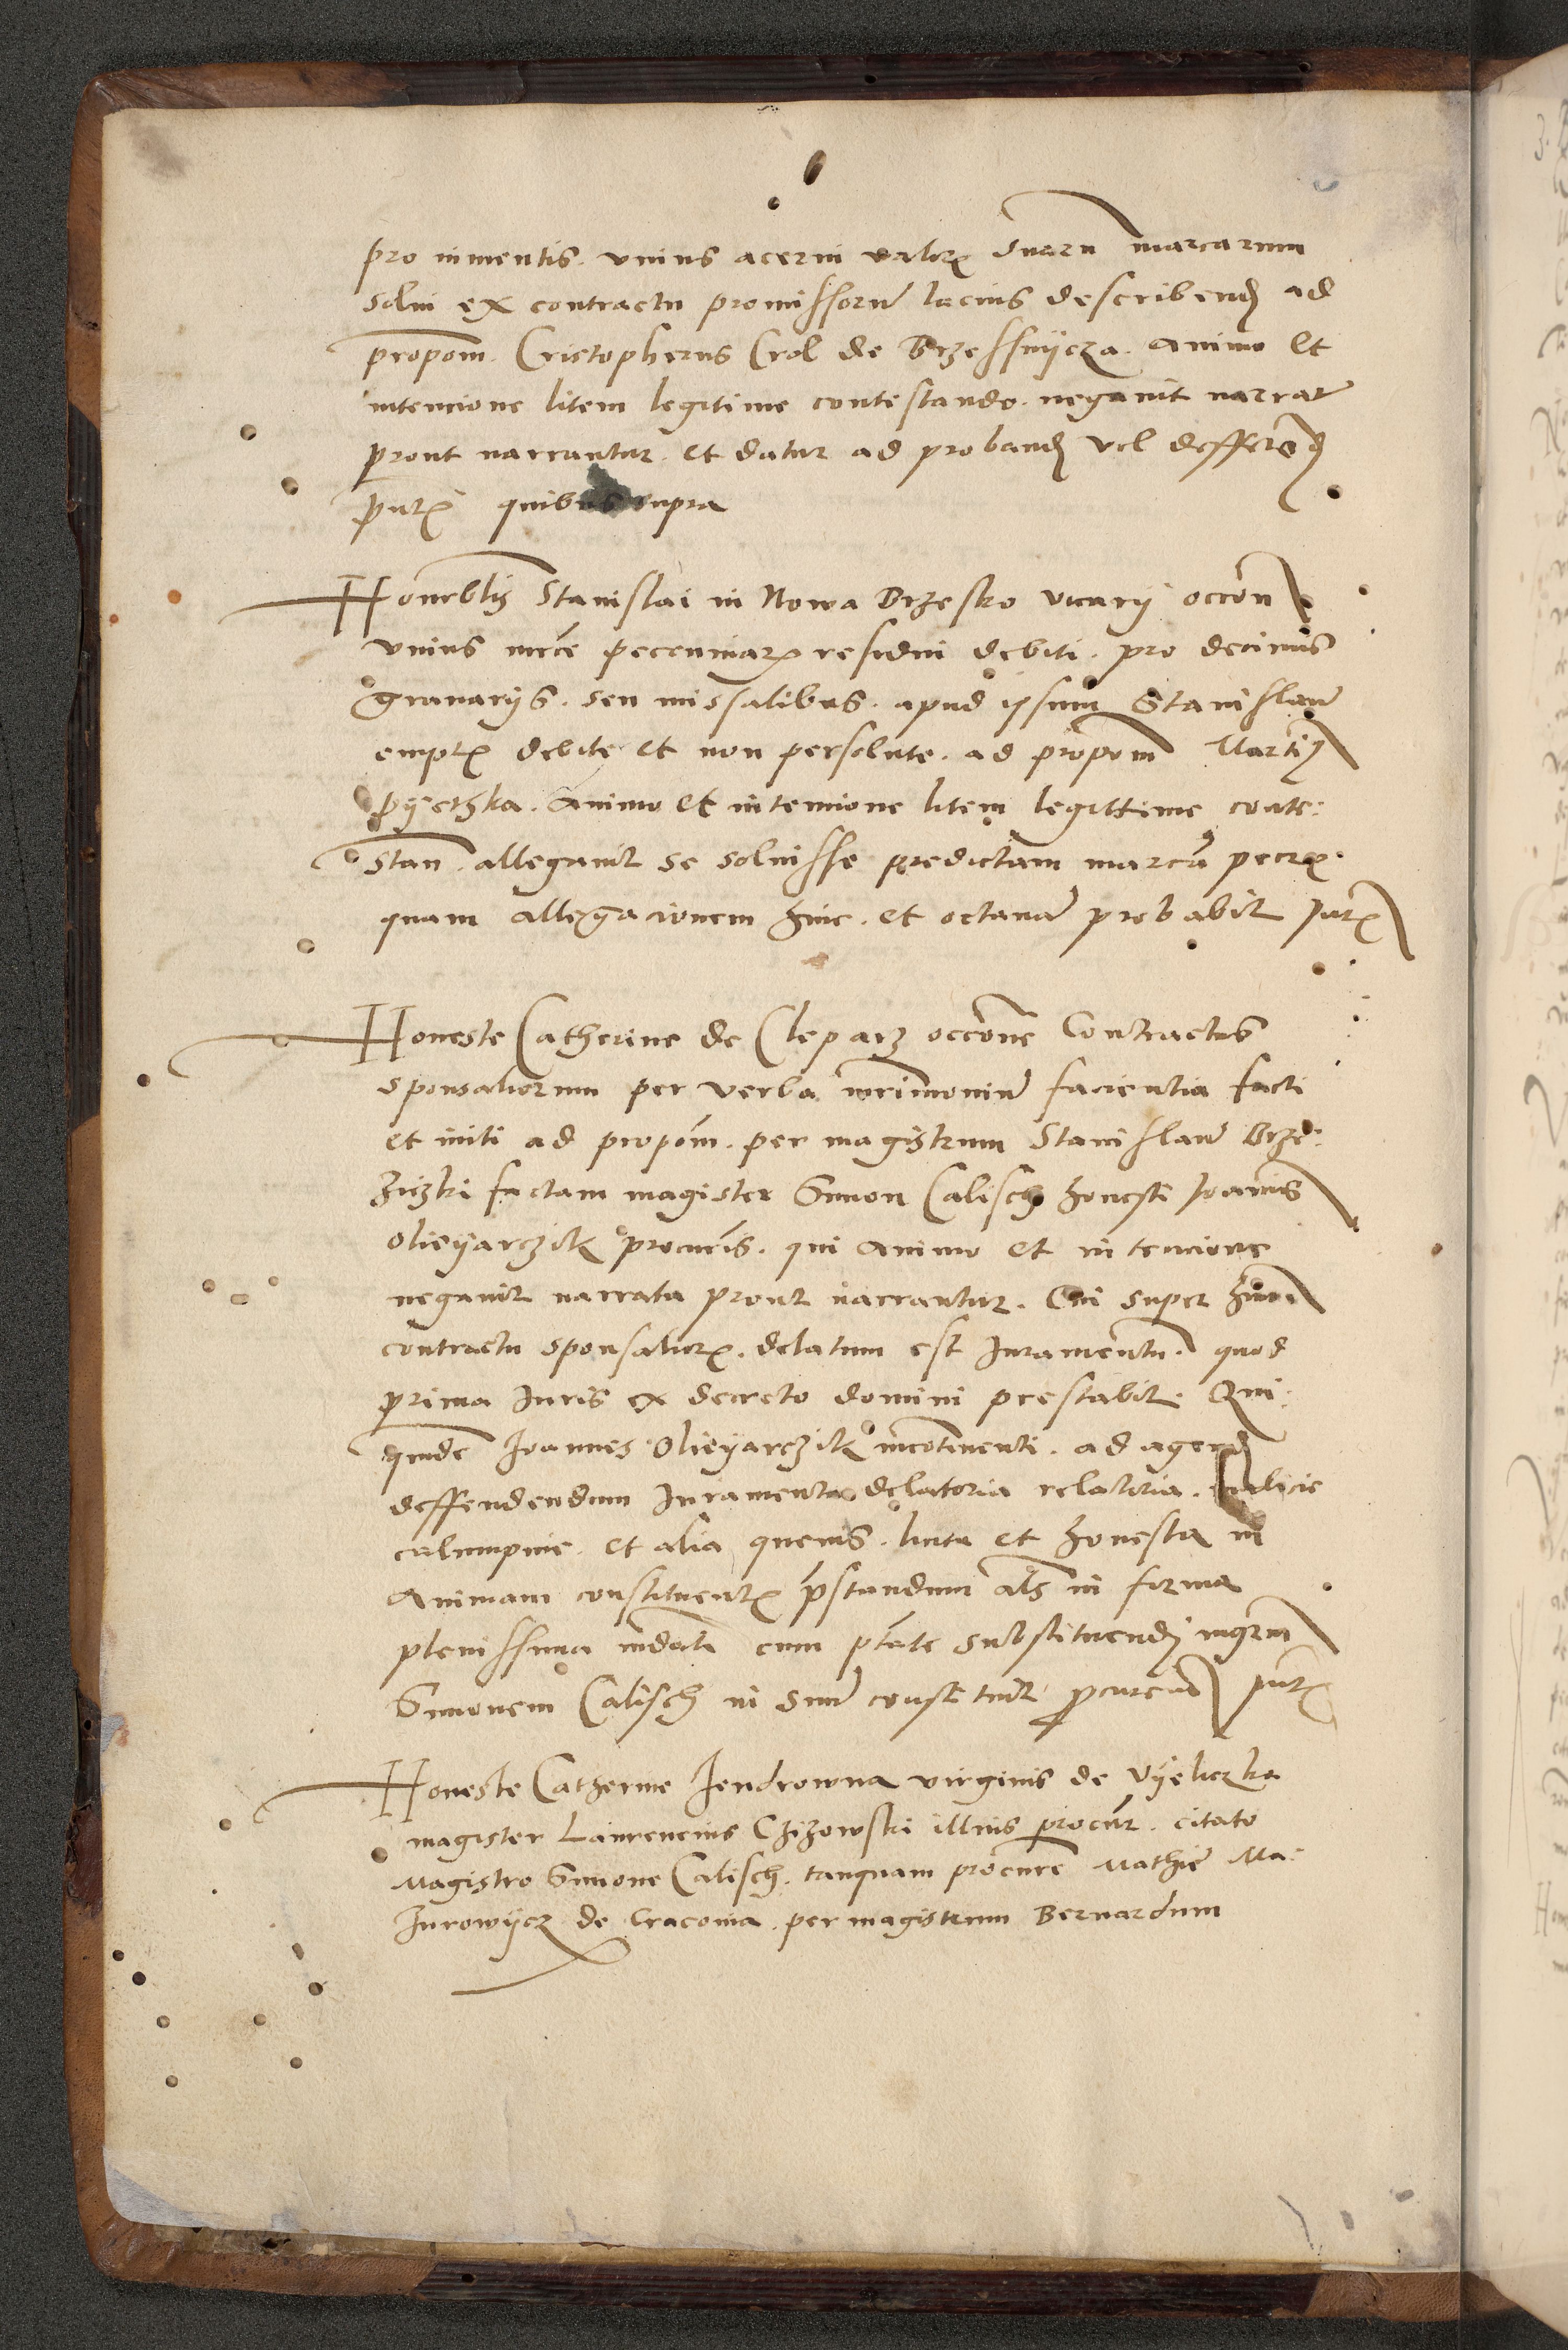 pro iumentis. vnius acerui valor(is) duaru(m) marcarum
solui ex contractu promissoru(m) lacius describend(o) ad
propom. Cristopherus Crol de Brzessnycza. animo et
intencione litem legitime contestando. negauit narrat(a)
prout narrantur. et datur ad proband(um) vel defferend(um)
pntib(us) quibus supra
Honorblis Stanislai in Nowa Brzesko vicarij occon
vnius mrce peccuniar(um) residui debiti. pro decimis
granarijs. seu missalibus. apud ipsum Stanislau(m)
emptis debite et non persolute. ad propom Martin(us)
pyeczka. Animo et intencione litem legittime conte:
stan. allegauit se soluisse predictam marca(m) peccu(niarum).
quam allegacionem hinc. et octaua(m) probabit pntib(us)
Honeste Catherine de Cleparz occone Contractus
sponsaliorum per verba mrimoniu(m) facientia facti
et initi ad propom. per magistrum Stanislau(m) Brze:
ziczki factam magister Simon Calisch honesti Joannis
Olieyarczik procuris. qui animo et intencione
negauit narrata prout narrantur. Cui super huiu(smodi)
contractu sponsalior(um). delatum est Juramentu(m). quod
prima Juris ex decreto domini prestabit. Qui:
quide(m) Joannes Olieyarczik incontinenti. ad agend(um)
deffendendum Juramenta delatoria relatoria. malicie
calumpnie. et alia queuis. licita et honesta in
Animam constituentis pstandum als in forma
plenissima mdati cum ptate substituendi mgrm
Simonem Calisch in suu(m) constituit procurat(orem) pntib(us)
Honeste Catherine Jendrowna virginis de Vyeliczka
magister Laurencius Czizowski illius procur. citato
Magistro Simone Calisch. tanquam procure Mathie Ma:
zurowycz de Cracouia. per magistrum Bernardum